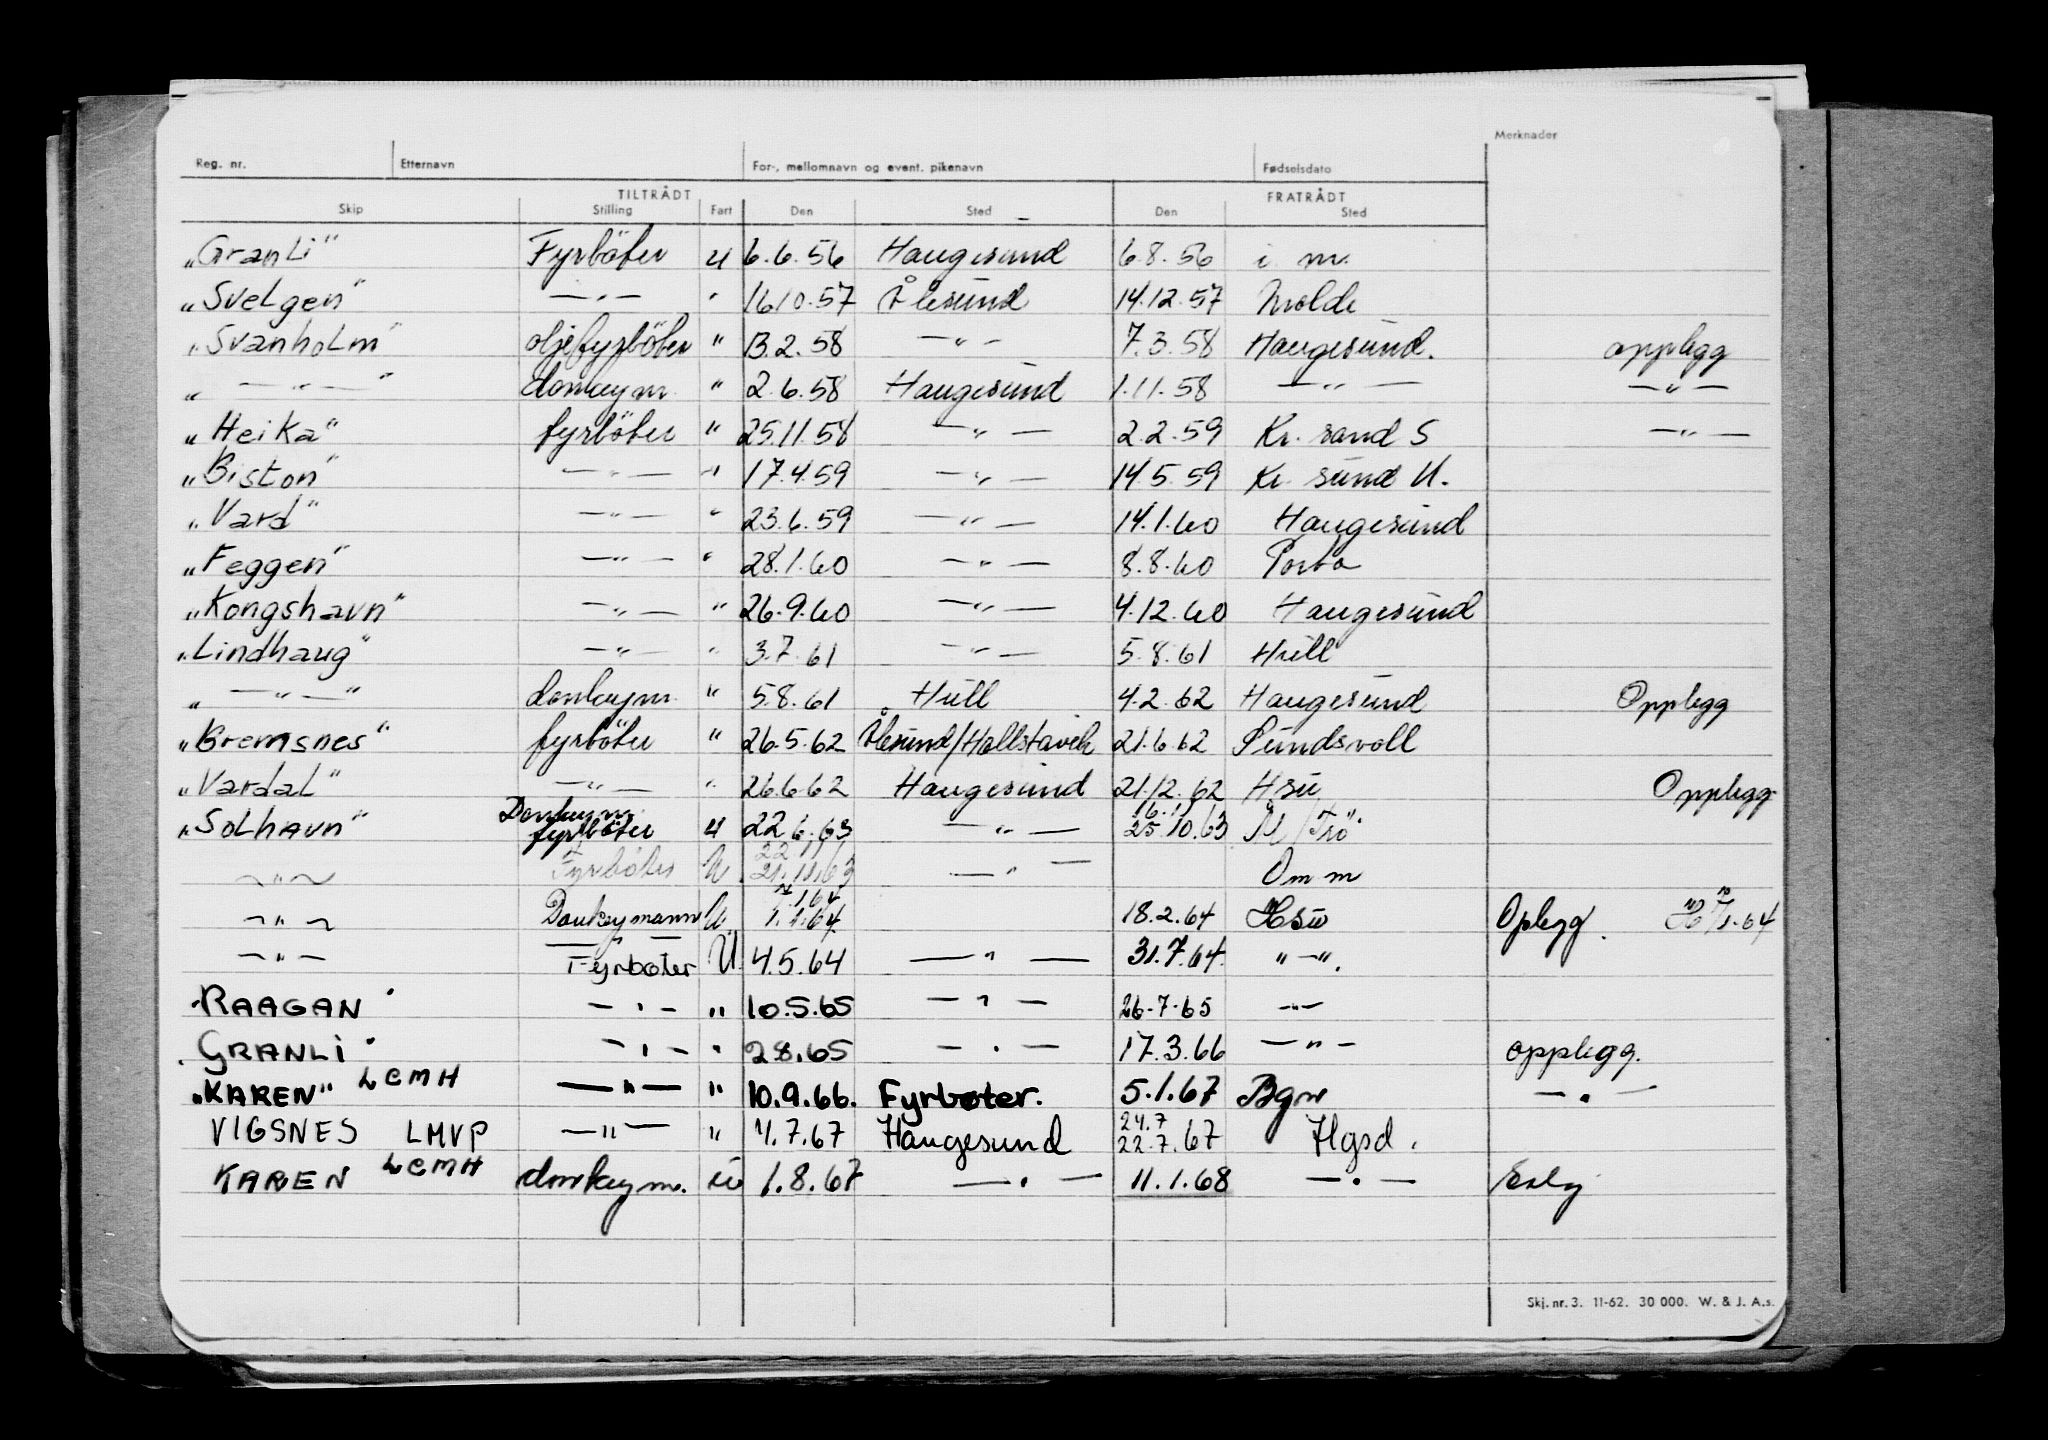 Merknader
Reg. nr. Etternavn For-, mellomnavn og event. pikenavn Fødselsdato
TILTRÅDT FRATRÅDT
Skip Stilling Fart Den Sted Den Sted
„Granli" Fyrböter U 6.6.56 Haugesund 6.8.56 i m.
„Svelgen" — „ — " 16.10.57 Ålesund 14.12.57 Molde
„Svanholm" oljefyrböter " 13.2.58 — „ — 7.3.58 Haugesund. opplegg
„ — „ — " donkeym. " 2.6.58 Haugesund 1.11.58 — „ — — „ —
„Heika" fyrböter " 25.11.58 — „ — 2.2.59 Kr. sand S — „ —
„Biston" — „ — " 17.4.59 — „ — 14.5.59 Kr. sund N.
„Vard" — „ — " 23.6.59 — „ — 14.1.60 Haugesund
„Feggen" — „ — " 28.1.60 — „ — 8.8.60 Porto
„Kongshavn" — „ — " 26.9.60 — „ — 4.12.60 Haugesund
„Lindhaug" — „ — " 3.7.61 — „ — 5.8.61 Hull
„ — „ — " donkeym. " 5.8.61 Hull 4.2.62 Haugesund Opplegg
„Bremsnes" fyrböter " 26.5.62 Ålesund/Hallstavik 21.6.62 Sundsvall
„Vardal" — „ — " 26.6.62 Haugesund 21.12.62 Hsu Opplegg
Donkeym. 16.11
„Solhavn" fyrböter U 22.6.63 — „ — 25.10.63 M/Trö
— " — Fyrböter U 21.11.63 — " — Om m
— " — Donkeymann U 1.1.64 18.2.64 Hsu Oplegg.
— " — Fyrböter U. 4.5.64 — " — 31.7.64. " — ".
"RAAGAN" — " — " 10.5.65 — " — 26-7-65 — " —
"GRANLI" — " — " 2.8.65 — " — 17.3.66 — " — opplegg.
„KAREN" LCMH — " — " 10.9.66. Fyrboter. 5.1.67 Bgn — " —
24.7
VIGSNES LMVP — " — " 4.7.67 Haugesund 22.7.67 Hgsd.
KAREN LCMH donkeym. U 1.8.67 — " — 11.1.68 — " —
Skj. nr. 3. 11-62. 30 000. W. & J. A.s.